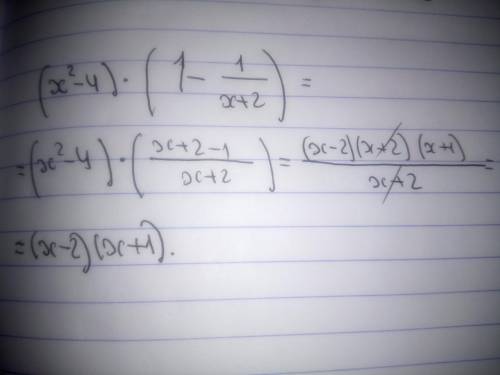 (x²-4)·(1-1/(x+2))=
=(x²-4)·((x+2-1)/(x+2))=((x-2)(x+2)(x+1))/(x+2)=
=(x-2)(x+1).